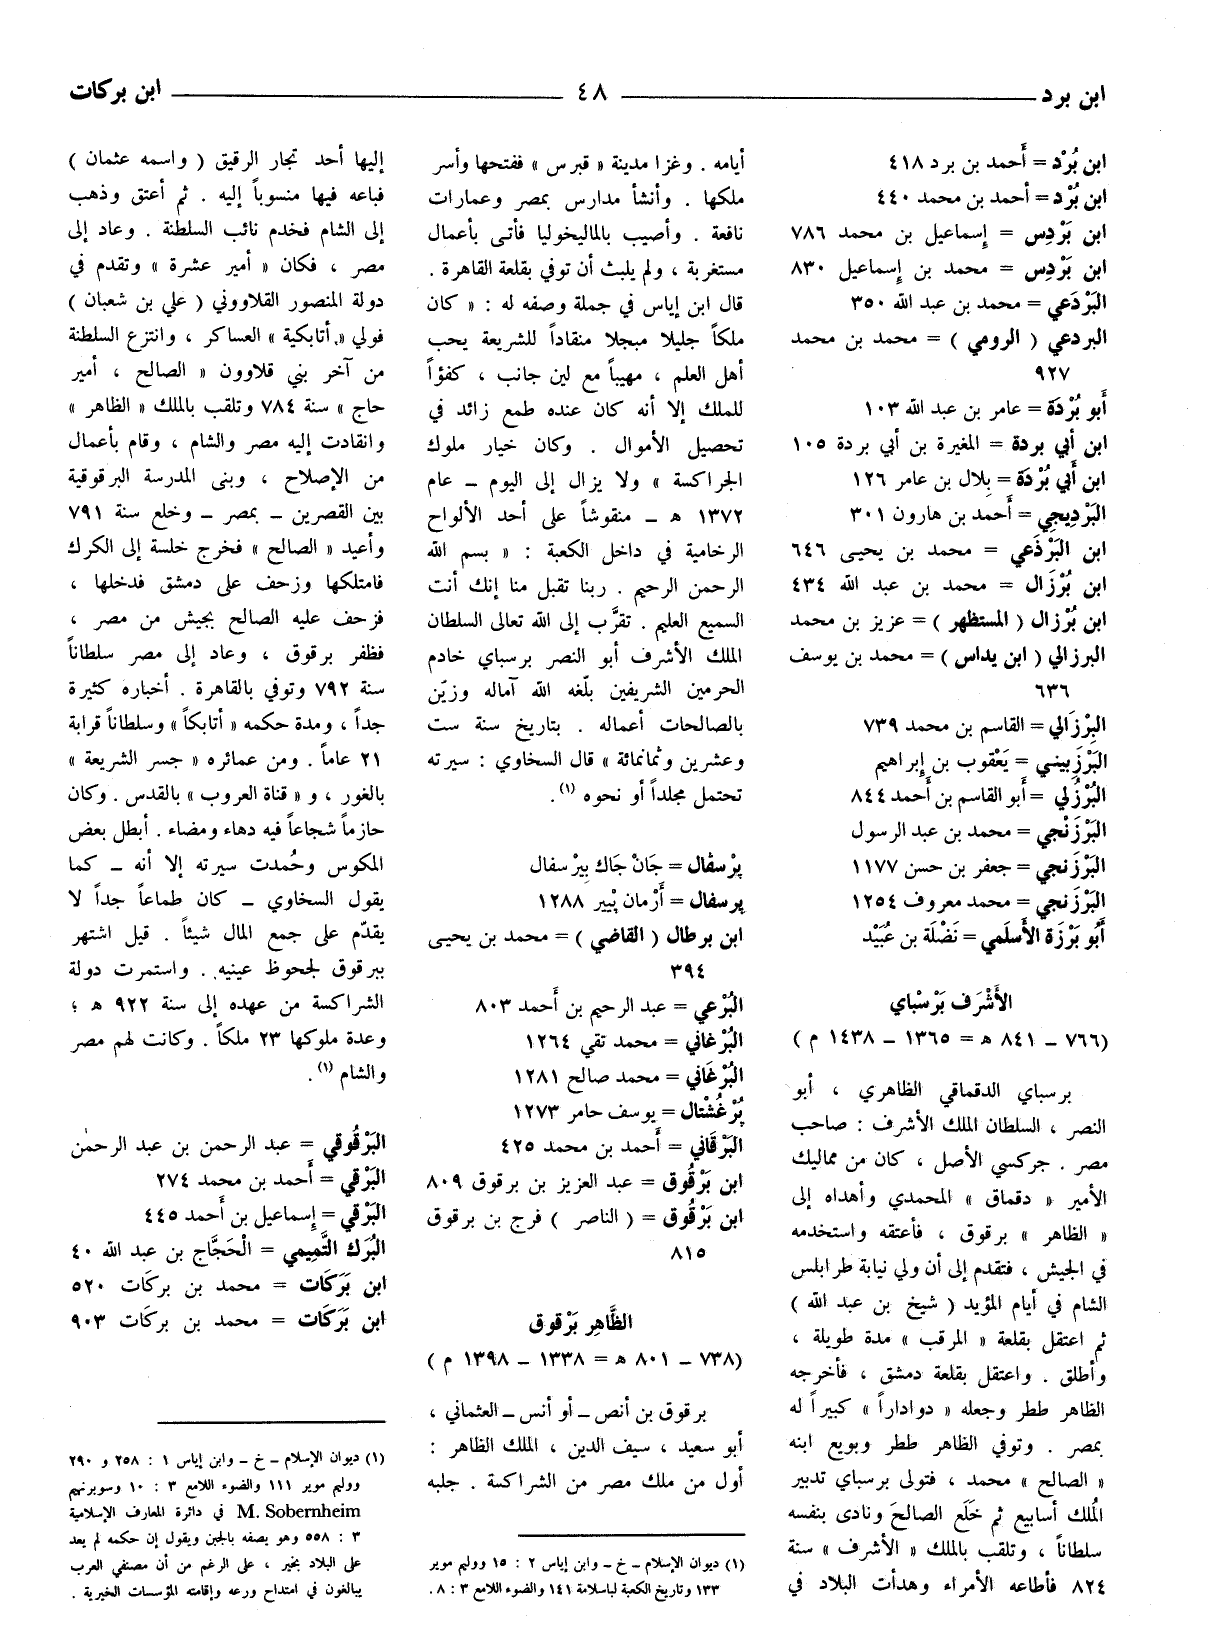 ابن برد
٤٨
ابن بركات
ابن بُرْد = أَحمد بن برد ٤١٨
ابن بُرْد = أحمد بن محمد ٤٤٠
ابن بَرْدِس = إِسماعيل بن محمد ٧٨٦
ابن بَرْدِس = محمد بن إِسماعيل ٨٣٠
البَرْدَعي = محمد بن عبد الله ٣٥٠
البردعي ( الرومي ) = محمد بن محمد
٩٢٧
أَبو بُرْدَة = عامر بن عبد الله ١٠٣
ابن أبي بردة = المغيرة بن أبي بردة ١٠٥
ابن أَبي بُرْدَة = بِلال بن عامر ١٢٦
البَرْدِيجي = أَحمد بن هارون ٣٠١
ابن البَرْذَعي = محمد بن يحيى ٦٤٦
ابن بُرْزَال = محمد بن عبد الله ٤٣٤
ابن بُرْزال ( المستظهر ) = عزيز بن محمد
البرزالي ( ابن يداس ) = محمد بن يوسف
٦٣٦
البِرْزَالي = القاسم بن محمد ٧٣٩
البَرْزَبِيني = يَعْقوب بن إِبراهيم
البُرْزُلي = أَبو القاسم بن أَحمد ٨٤٤
البَرْزَنْجي = محمد بن عبد الرسول
البَرْزَنجي = جعفر بن حسن ١١٧٧
البَرْزَنجي = محمد معروف ١٢٥٤
أَبُو بَرْزَة الأَسلَمي = نَضْلَة بن عُبَيْد
الأَشْرَف بَرْسْباي
(٧٦٦ - ٨٤١ ه = ١٣٦٥ - ١٤٣٨ م )
برسباي الدقماقي الظاهري ، أبو
النصر ، السلطان الملك الأشرف : صاحب
مصر . جركسي الأصل ، كان من مماليك
الأمير « دقماق » المحمدي وأهداه إلى
« الظاهر » برقوق ، فأعتقه واستخدمه
في الجيش ، فتقدم إلى أن ولي نيابة طرابلس
الشام في أيام المؤيد ( شيخ بن عبد الله )
ثم اعتقل بقلعة « المرقب » مدة طويلة ،
وأطلق . واعتقل بقلعة دمشق ، فأخرجه
الظاهر ططر وجعله « دواداراً » كبيراً له
بمصر . وتوفي الظاهر ططر وبويع ابنه
« الصالح » محمد ، فتولى برسباي تدبير
المُلك أسابيع ثم خَلَع الصالحَ ونادى بنفسه
سلطاناً ، وتلقب بالملك « الأشرف » سنة
٨٢٤ فأطاعه الأمراء وهدأت البلاد في
أيامه . وغزا مدينة « قبرس » ففتحها وأسر
ملكها . وأنشأ مدارس بمصر وعمارات
نافعة . وأصيب بالماليخوليا فأتى بأعمال
مستغربة ، ولم يلبث أن توفي بقلعة القاهرة .
قال ابن إياس في جملة وصفه له : « كان
ملكاً جليلا مبجلا منقاداً للشريعة يحب
أهل العلم ، مهيباً مع لين جانب ، كفؤاً
للملك إلا أنه كان عنده طمع زائد في
تحصيل الأموال . وكان خيار ملوك
الجراكسة » ولا يزال إلى اليوم - عام
١٣٧٢ ه - منقوشاً على أحد الألواح
الرخامية في داخل الكعبة : « بسم الله
الرحمن الرحيم . ربنا تقبل منا إنك أنت
السميع العليم . تقرَّب إلى الله تعالى السلطان
الملك الأشرف أبو النصر برسباي خادم
الحرمين الشريفين بلّغه الله آماله وزيّن
بالصالحات أعماله . بتاريخ سنة ست
وعشرين وثمانمائة » قال السخاوي : سيرته
تحتمل مجلداً أو نحوه (١).
پرْسفال = جَانْ جَاك بِيرْ سفال
پرسفال = أَرْمان پْيير ١٢٨٨
ابن برطال ( القاضي ) = محمد بن يحيى
٣٩٤
البُرْعي = عبد الرحيم بن أَحمد ٨٠٣
البُرْغاني = محمد تقي ١٢٦٤
البُرْغَاني = محمد صالح ١٢٨١
پُرْغشْتال = يوسف حامر ١٢٧٣
البَرْقَاني = أَحمد بن محمد ٤٢٥
ابن بَرْقُوق = عبد العزيز بن برقوق ٨٠٩
ابن بَرْقُوق = ( الناصر ) فرج بن برقوق
٨١٥
الظَّاهِر بَرْقوق
(٧٣٨ - ٨٠١ ه = ١٣٣٨ - ١٣٩٨ م )
برقوق بن أنص - أو أنس - العثماني ،
أبو سعيد ، سيف الدين ، الملك الظاهر :
أول من ملك مصر من الشراكسة . جلبه
(١) ديوان الإسلام - خ - وابن إياس ٢ : ١٥ ووليم موير
١٣٣ وتاريخ الكعبة لباسلامة ١٤١ والضوء اللامع ٣ : ٨ .
إليها أحد تجار الرقيق ( واسمه عثمان )
فباعه فيها منسوباً إليه . ثم أعتق وذهب
إلى الشام فخدم نائب السلطنة . وعاد إلى
مصر ، فكان « أمير عشرة » وتقدم في
دولة المنصور القلاووني ( علي بن شعبان )
فولي « أتابكية » العساكر ، وانتزع السلطنة
من آخر بني قلاوون « الصالح ، أمير
حاج » سنة ٧٨٤ وتلقب بالملك « الظاهر »
وانقادت إليه مصر والشام ، وقام بأعمال
من الإصلاح ، وبنى المدرسة البرقوقية
بين القصرين - بمصر - وخلع سنة ٧٩١
وأعيد « الصالح » فخرج خلسة إلى الكرك
فامتلكها وزحف على دمشق فدخلها ،
فزحف عليه الصالح بجيش من مصر ،
فظفر برقوق ، وعاد إلى مصر سلطاناً
سنة ٧٩٢ وتوفي بالقاهرة . أخباره كثيرة
جداً ، ومدة حكمه « أتابكاً » وسلطاناً قرابة
٢١ عاماً . ومن عمائره « جسر الشريعة »
بالغور ، و « قناة العروب » بالقدس . وكان
حازماً شجاعاً فيه دهاء ومضاء . أبطل بعض
المكوس وحُمدت سيرته إلا أنه - كما
يقول السخاوي - كان طماعاً جداً لا
يقدّم على جمع المال شيئاً . قيل اشتهر
ببرقوق لجحوظ عينيه . واستمرت دولة
الشراكسة من عهده إلى سنة ٩٢٢ ه ؛
وعدة ملوكها ٢٣ ملكاً . وكانت لهم مصر
والشام (١) .
البَرْقُوقي = عبد الرحمن بن عبد الرحمٰن
البَرْقي = أَحمد بن محمد ٢٧٤
البَرْقي = إسماعيل بن أَحمد ٤٤٥
البُرَك التَّمِيمي = الْحَجَّاج بن عبد الله ٤٠
ابن بَرَكَات = محمد بن بركَات ٥٢٠
ابن بَرَكَات = محمد بن بركات ٩٠٣
(١) ديوان الإسلام - خ - وابن إياس ١ : ٢٥٨ و ٢٩٠
ووليم موير ١١١ والضوء اللامع ٣ : ١٠ وسوبرنهيم
M. Sobernheim في دائرة المعارف الإسلامية
٣ : ٥٥٨ وهو يصفه بالجبن ويقول إن حكمه لم يعد
على البلاد بخير ، على الرغم من أن مصنفي العرب
يبالغون في امتداح ورعه وإقامته المؤسسات الخيرية .